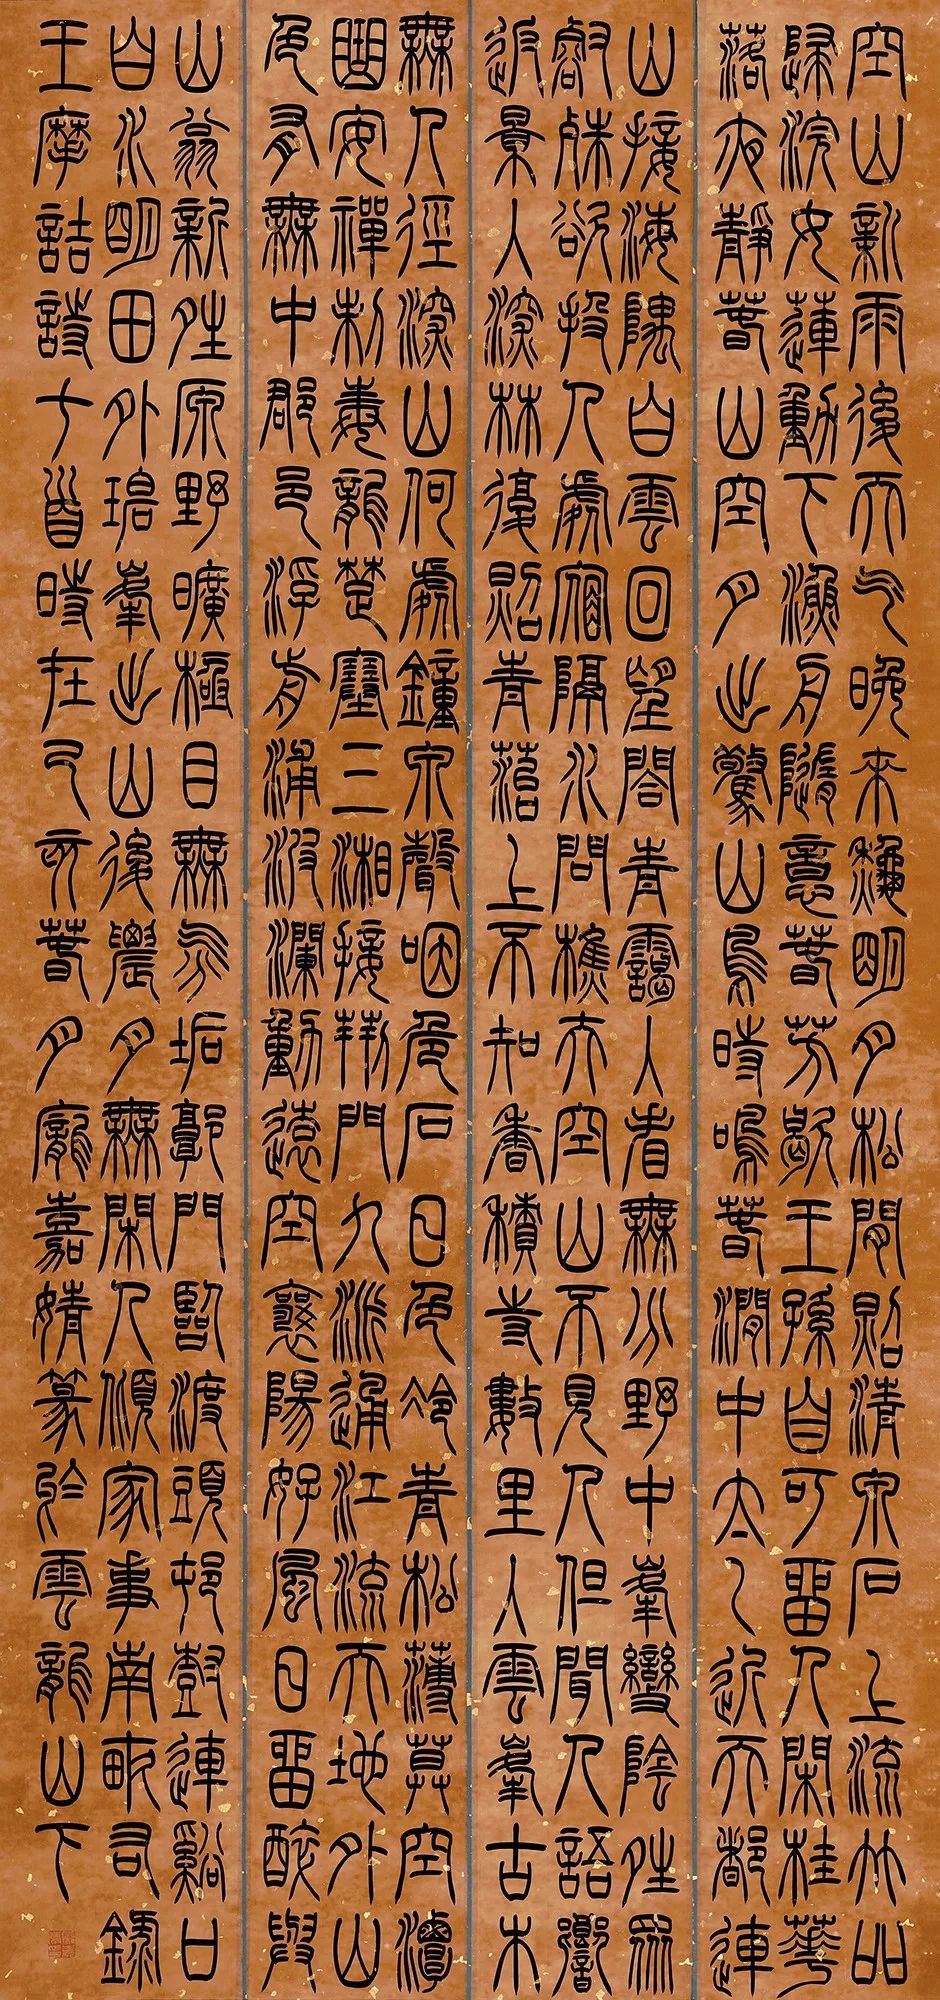 空山新雨後天气晚來秋明月松間照清泉石上流竹喧
歸浣女蓮動下漁舟隨意春芳歇王孫自可留人閒桂華
落夜靜春山空月出驚山鳥時鳴春澗中太乙近天都連
山接海隅白雲回望合青靄入看無分野中峯變陰晴眾
壑殊欲投人處宿隔水問樵夫空山不見人但聞人語響
返景入深林復照青苔上不知香積寺數里入雲峯古木
無人徑深山何處鐘泉聲咽危石日色冷青松薄莫空潭
曲安禪制毒龍楚塞三湘接荊門九派通江流天地外山
色有無中郡邑浮前浦波瀾動遠空襄陽好風日留醉與
山翁新晴原野曠極目無氛垢郭門臨渡頭邨樹連谿口
白水明田外碧峯出山後農月無閒人傾家事南畝右錄
王摩詰詩七首時在己亥春月龐嘉婧篆於雲龍山下